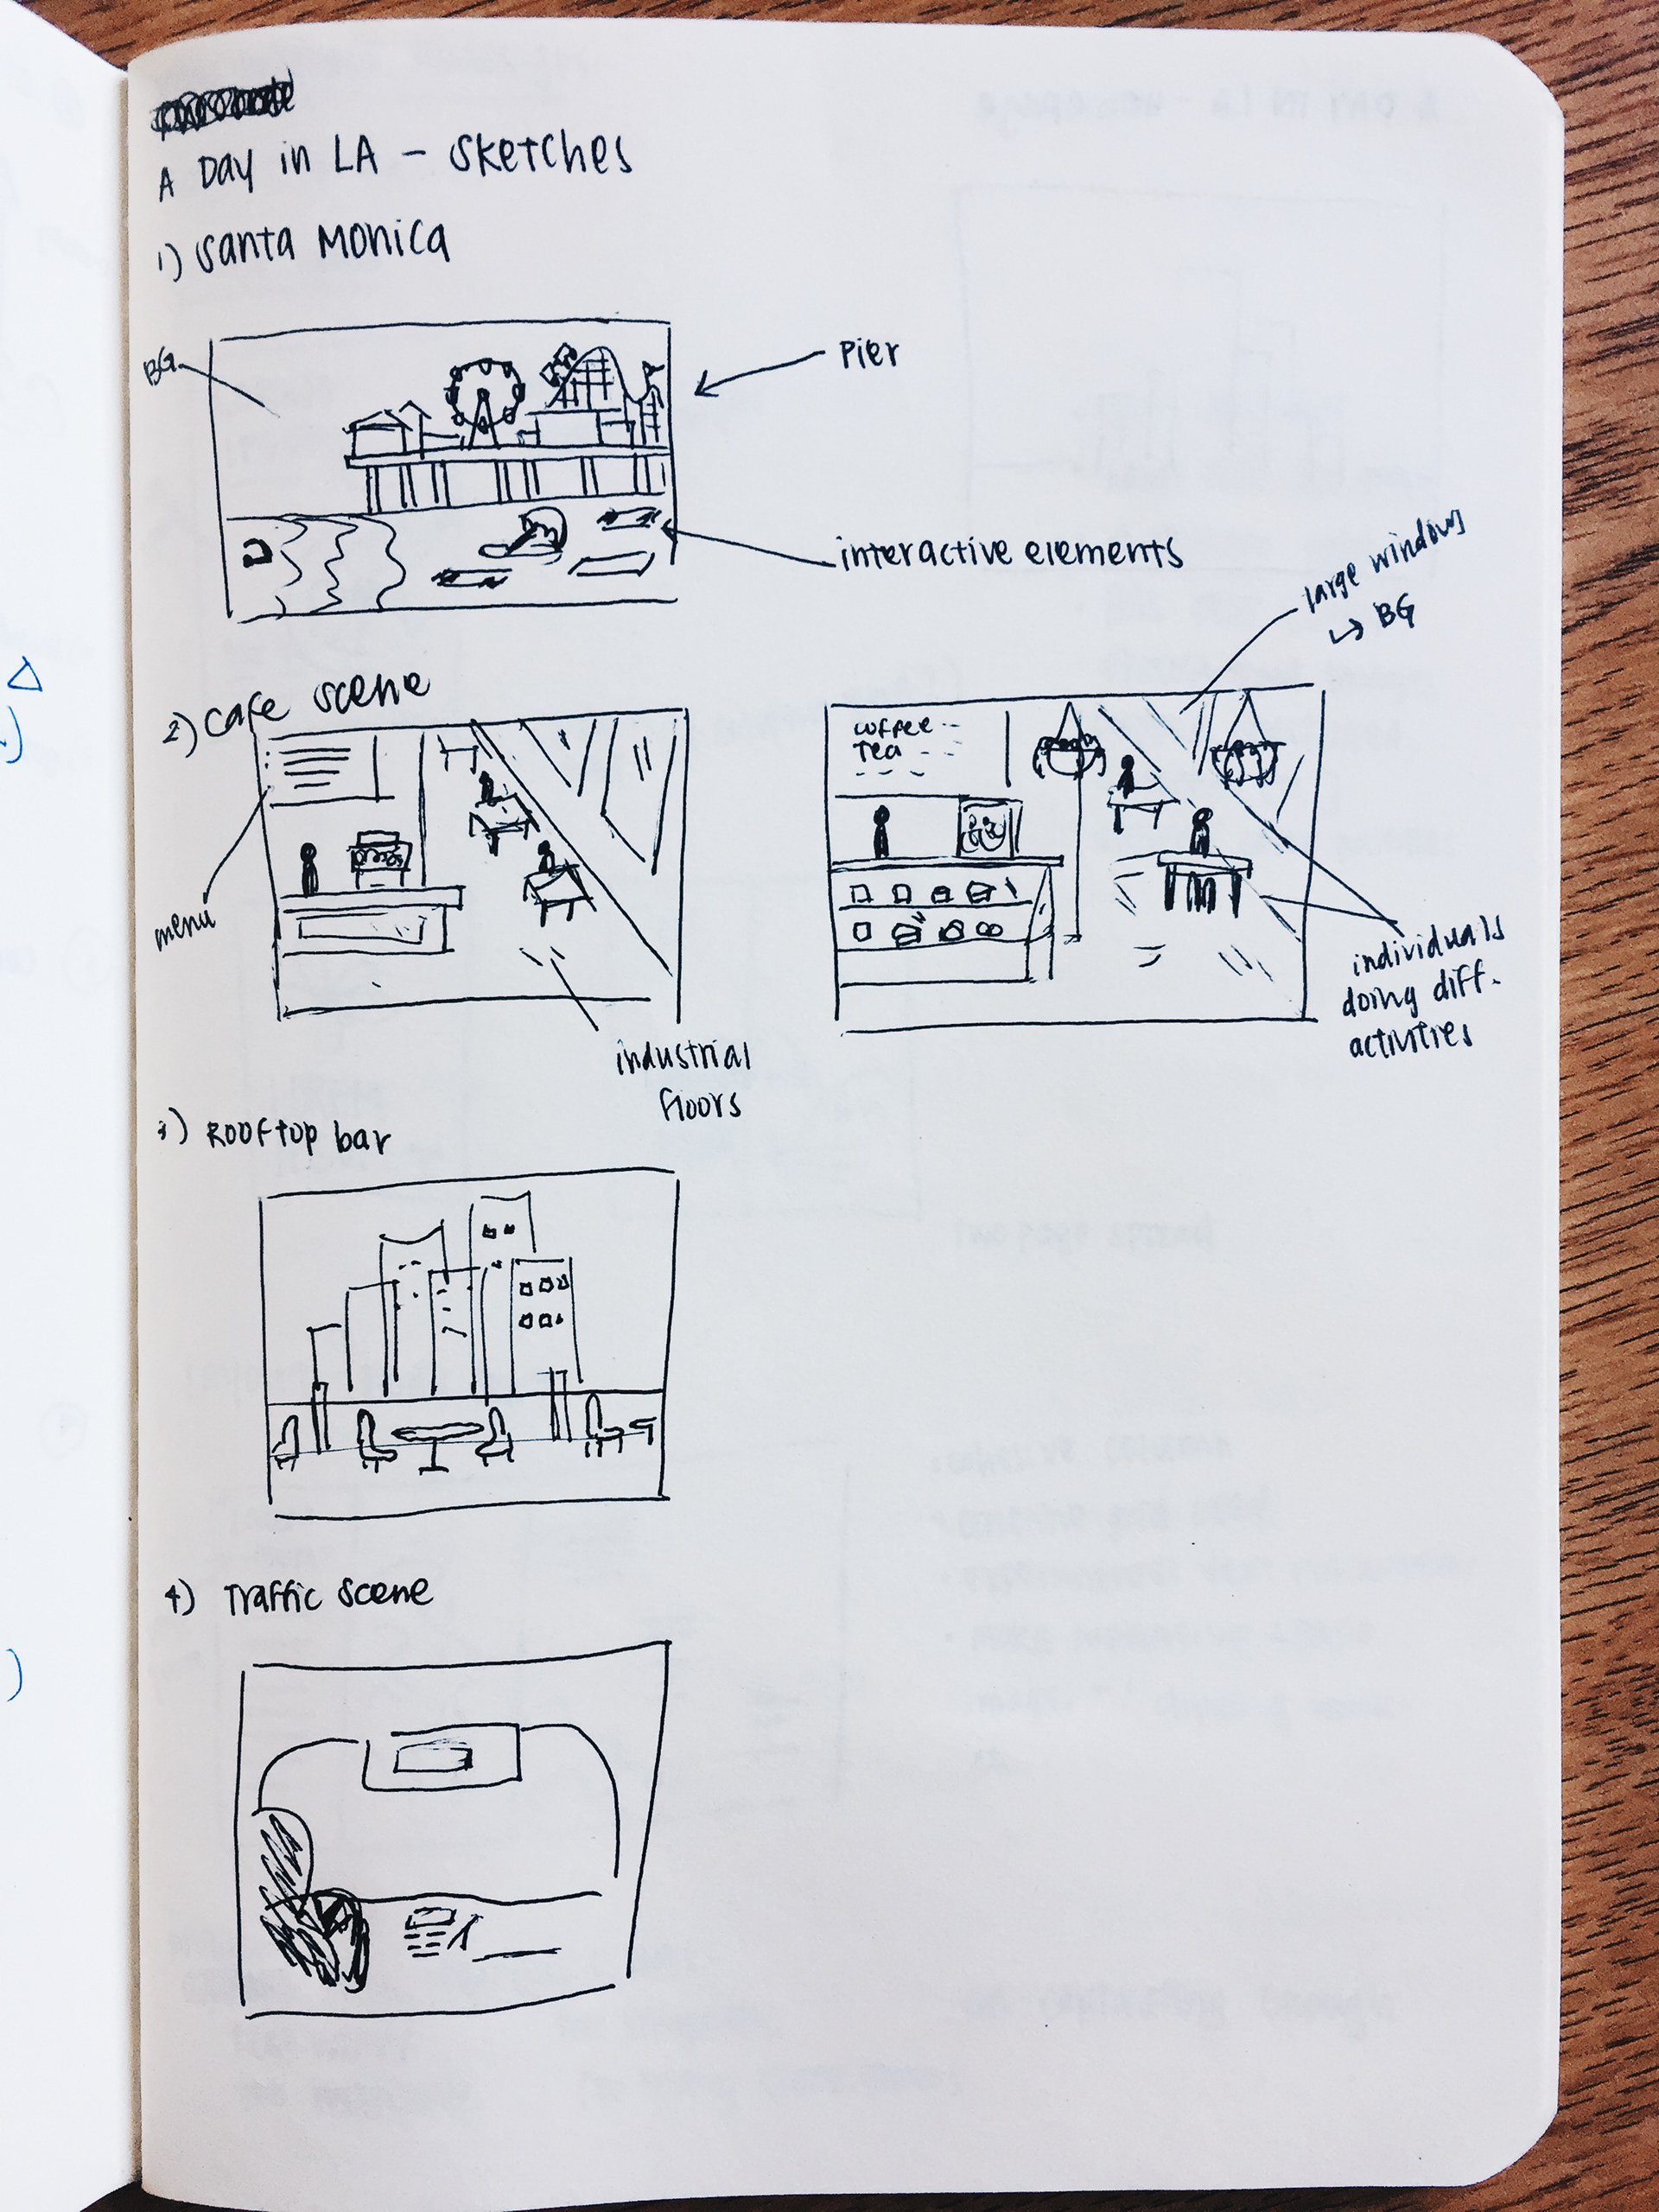 A Day in LA - sketches
1) Santa Monica
BG
Pier
interactive elements
large windows
↳ BG
2) Cafe scene
coffee
Tea
menu
individuals
doing diff.
activities
industrial
floors
3) Rooftop bar
4) Traffic scene